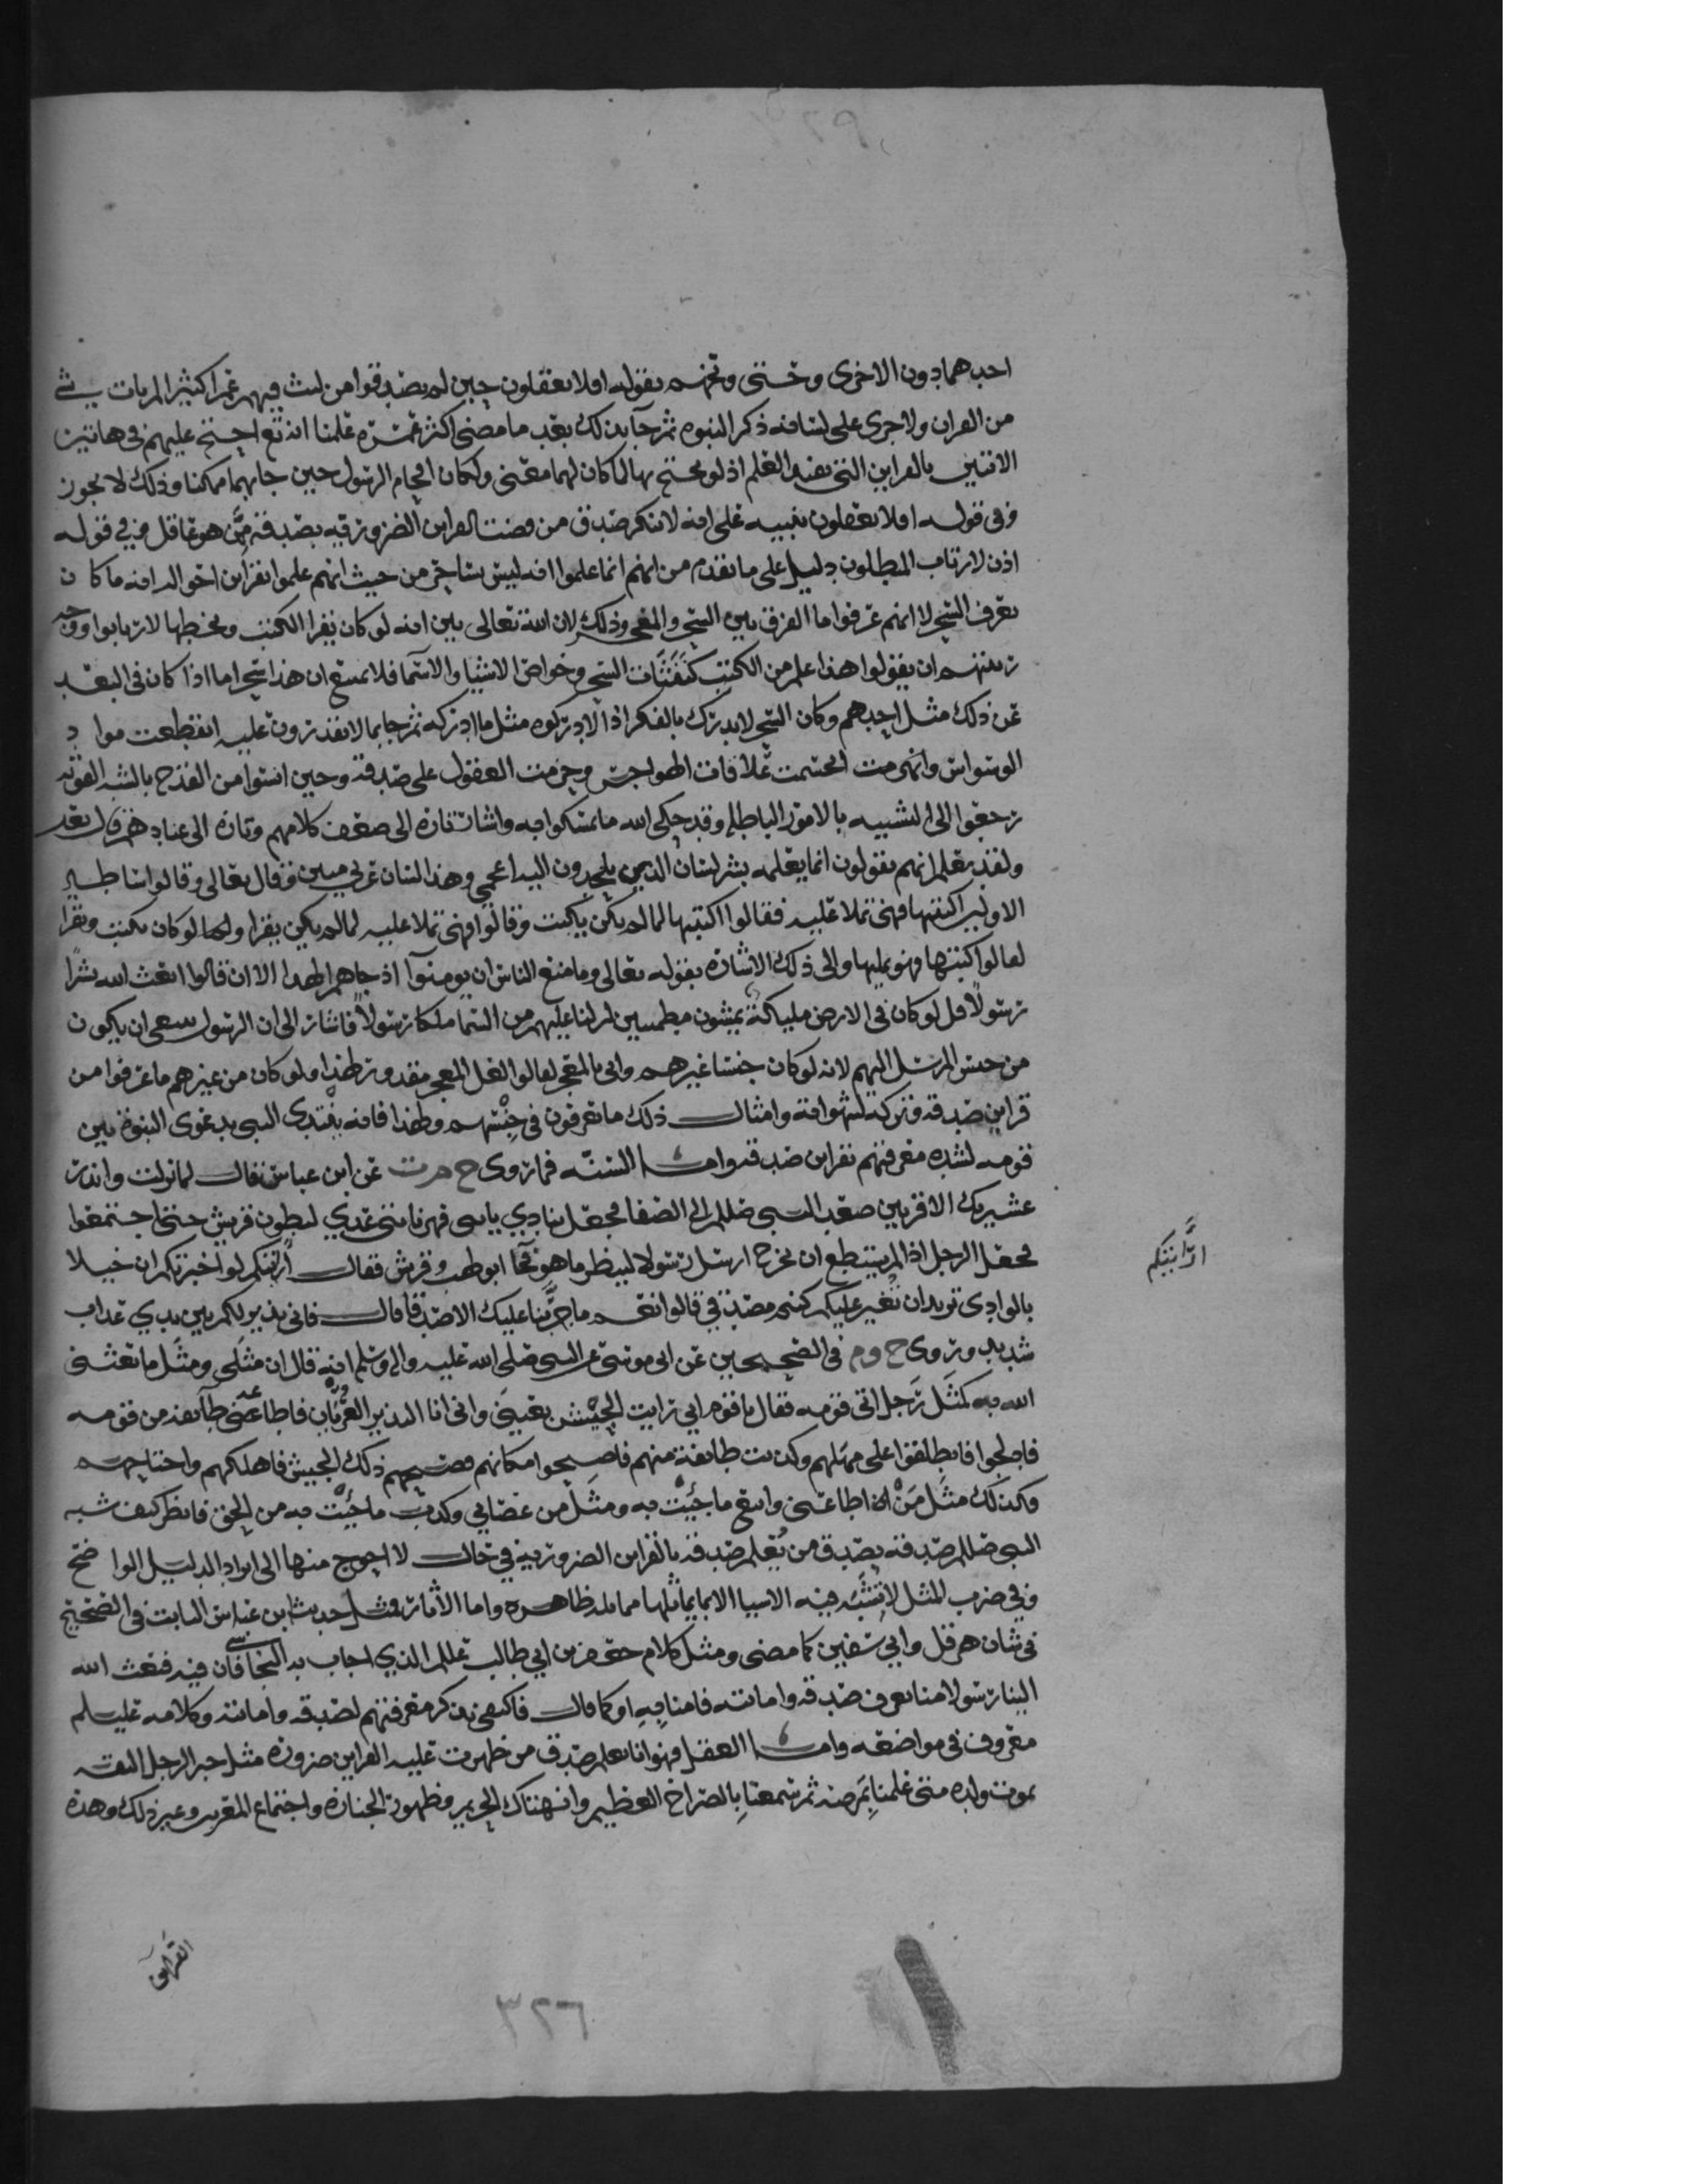 احدهما دون الاخرى وحسن وبخهم بقوله افلا تعقلون حين لم يصدقوا من لبث فيهم عمرا كثيرا لم يات بشي
من القران ولا جرى على لسانه ذكر النبوه ثم جا بذلك بعد ما مضى اكثر عمره علمنا انه تع احتج عليهم في هاتين
الاثنتين بالقراين التي تفيد العلم اذ لو يحتج بها لما كان لهما معنى ولكان افحام الرسول حين جا بهما ممكنا وذلك لا يجوز
وفي قوله افلا تعقلون تنبيه على انه لا ينكر صدق من قضت القراين الضروريه بصدقه من هو عاقل وفي قوله
اذن لارتاب المبطلون دليل على ما تقدم من انهم انما علموا انه ليس بساحر من حيث انهم علموا بقراين احواله انه ما كان
يعرف السحر لا انهم عرفوا ما الفرق بين السحر والمعجز وذلك لان الله تعالى بين انه لو كان يقرا الكتب ويخطها لارتابوا ووجه
ريبتهم ان يقولوا هذا علم من الكتب كنفثات السحر وخواص الاشيا والاسما فلا يمتنع ان هذا سحر اما اذا كان في البعد
عن ذلك مثل احدهم وكان السحر لا يدرك بالفكر اذا لادركوه مثل ما ادركه ثم جا بما لا يقدرون عليه انقطعت مواد
الوسواس وانحسمت علاقات الهواجس وجزمت العقول على صدقه وحين ايسوا من القدح بالشبه القويه
رجعوا الى التشبيه بالامور الباطله وقد حكى الله ما تمسكوا به واشار تاره الى ضعف كلامهم وتاره الى عنادهم قال تعالى
ولقد نعلم انهم يقولون انما يعلمه بشر لسان الذين يلحدون اليه اعجمي وهذا لسان عربي مبين وقال تعالى وقالوا اساطير
الاولين اكتتبها فهي تملا عليه فقالوا اكتتبها لما لم يكن يكتب وقالوا فهي تملا عليه لما لم يكن يقرا ولو كان يكتب ويقرا
لقالوا كتبها فهو يمليها والى ذلك الاشاره بقوله تعالى وما منع الناس ان يومنوا اذ جاهم الهدا الا ان قالوا ابعث الله بشرا
رسولا قل لو كان في الارض مليكة يمشون مطمينين لنزلنا عليهم من السما ملكا رسولا فاشار الى ان الرسول ينبغي ان يكون
من جنس المرسل اليهم لانه لو كان جنسا غيرهم واتى بالمعجز لقالوا لعل المعجز مقدور لهذا ولو كان من غيرهم ما عرفوا من
قراين صدقه وتركه لشهواته وامثال ذلك ما تعرفون في جنسهم ولهذا فانه يبتدي النبي بدعوى النبوه بين
قومه لشده معرفتهم بقراين صدقه واما السنه فما روى خ م ت عن ابن عباس قال لما نزلت وانذر
عشيرتك الاقربين صعد النبي صللم الى الصفا فجعل ينادي يابني فهر يابني عدي لبطون قريش حتى اجتمعوا
فجعل الرجل اذا لم يستطع ان يخرج ارسل رسولا لينظر ما هو فجا ابو لهب وقريش فقال ارايتكم لو اخبرتكم ان خيلا
بالوادي تريد ان تغير عليكم كنتم مصدقي قالوا نعم ما جربنا عليك الا صدقا قال فاني نذير لكم بين يدي عذاب
شديد وروى خ وم في الصحيحين عن ابي موسى عن النبي صلى الله عليه واله وسلم انه قال ان مثلي ومثل ما بعثني
الله به كمثل رجل اتى قومه فقال يا قوم اني رايت الجيش بعيني واني انا النذير العريان فاطاعه طايفه من قومه
فادلجوا فانطلقوا على مهلهم وكذبت طايفة منهم فاصبحوا مكانهم فصبحهم ذلك الجيش فاهلكهم واجتاحهم
وكذلك مثل من اطاعني واتبع ما جيت به ومثل من عصاني وكذب ما جيت به من الحق فانظر كيف شبه
النبي صللم صدقه بصدق من يعلم صدقه بالقراين الضروريه في حال لا احوج منها الى ايراد الدليل الواضح
وفي ضرب المثل لا تشبه فيه الاشيا الا بما يماثلها مماثله ظاهره واما الاثار فمثل حديث ابن عباس الثابت في الصحيح
في شان هرقل وابي سفين كما مضى ومثل كلام جعفر بن ابي طالب عللم الذي اجاب به النجاشي فان فيه فبعث الله
الينا رسولا منا نعرف صدقه وامانته فامنا به او كما قال فاكتفى بذكر معرفتهم لصدقه وامانته وكلامه عليلم
معروف في مواضعه واما العقل فهو انا نعلم صدق من ظهرت عليه القراين ضروره مثل خبر الرجل الثقه
بموت ولده متى علمنا بمرضه ثم سمعنا بالصراخ العظيم وانهتاك الحريم وظهور الجنازه واجتماع وغير ذلك وهذه
القراين
٣٢٦